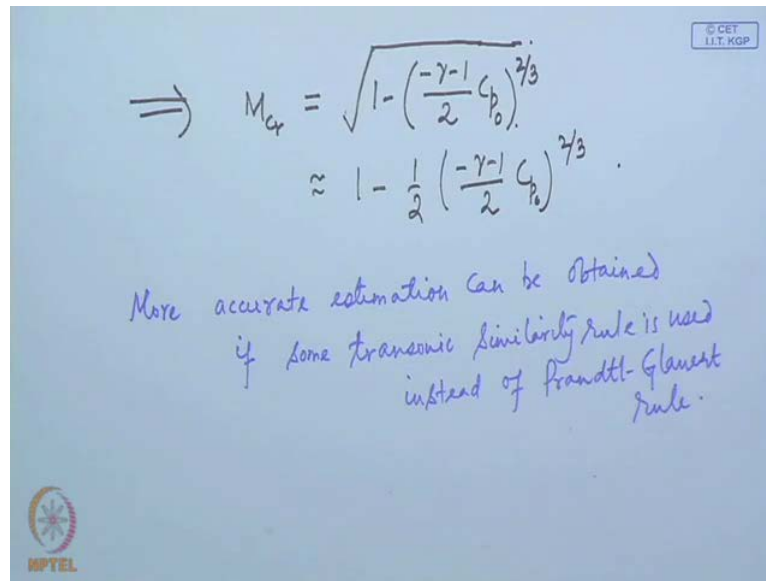 © CET
I.I.T. KGP
⇒ M_cr = √(1-(-γ-1/2 C_p₀)^2/3)
≈ 1 - 1/2 (-γ-1/2 C_p₀)^2/3 .
More accurate estimation can be obtained
if some transonic similarity rule is used
instead of Prandtl-Glauert
rule.
NPTEL